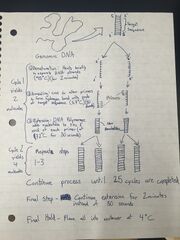 Target
Sequence
Genomic DNA
Cycle 1
yields
2
molecules
① Denaturation: Heat briefly
to separate DNA strands
(94°C)
② Annealing: cool to allow primers
to form hydrogen bond with ends of
target sequence
③ Extension: DNA Polymerase
adds nucleotides to the 3'
end of each primer
(72°C for 30 seconds)
Primers
new
nucleotides
Cycle 2
yields
4
molecules
Repeat steps
1-3
Continue process until 25 cycles are completed
Final Step - Continue extension for 2 minutes
instead of 30 seconds
Final Hold - Place at 4°C.